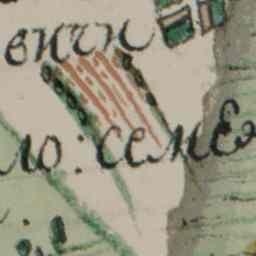 вичи
ло: семе